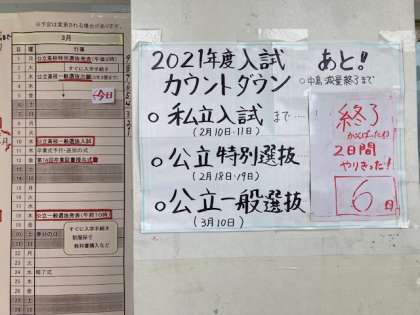 ※予定は変更される場合があります。
3月
日 曜 行事
公立高校特別選抜発表(午前10時)
すぐに入学手続き
公立高校一般選抜
今日
公立高校一般選抜入試
卒業式予行・送別の式
第74回卒業証書授与式
公立一般選抜発表(午前10時)
すぐに入学手続き
制服採寸
教科書購入など
春分の日
修了式
2021年度入試
カウントダウン
あと!
○私立入試 まで…
(2月10日・11日)
○公立特別選抜
(2月18日・19日)
○公立一般選抜
(3月10日)
終了
がんばったね
2日間
やりきった!
6日